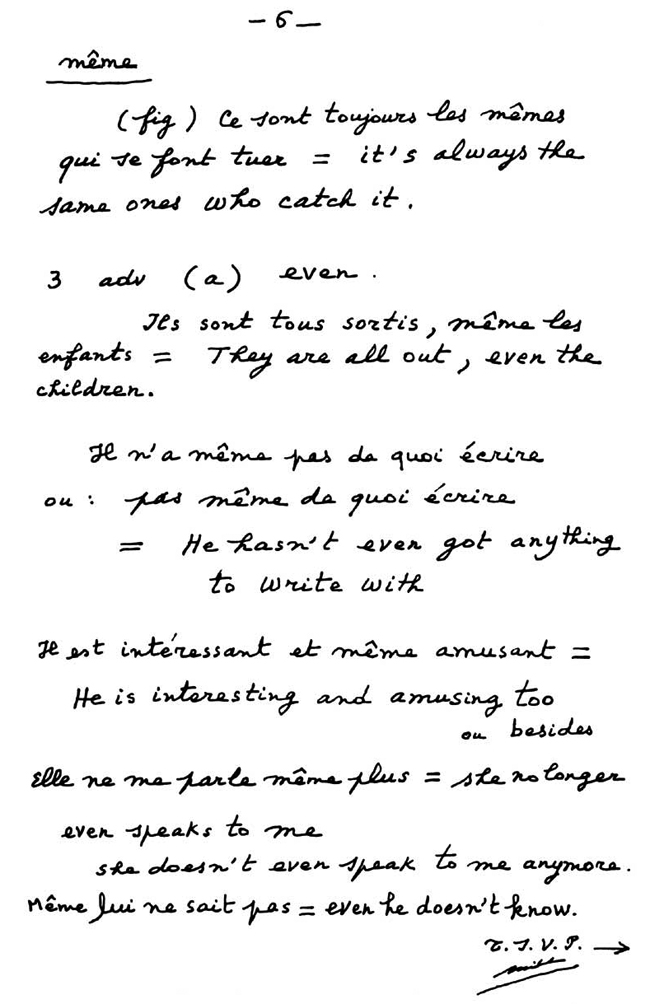 - 6 -
même
(fig) Ce sont toujours les mêmes
qui se font tuer = it's always the
same ones who catch it.
3 adv (a) even.
Ils sont tous sortis, même les
enfants = They are all out, even the
children.
Il n'a même pas de quoi écrire
ou : pas même de quoi écrire
= He hasn't even got anything
to write with
Il est intéressant et même amusant =
He is interesting and amusing too
ou besides
Elle ne me parle même plus = she no longer
even speaks to me
she doesn't even speak to me anymore.
Même lui ne sait pas = even he doesn't know.
T. S. V. P. →